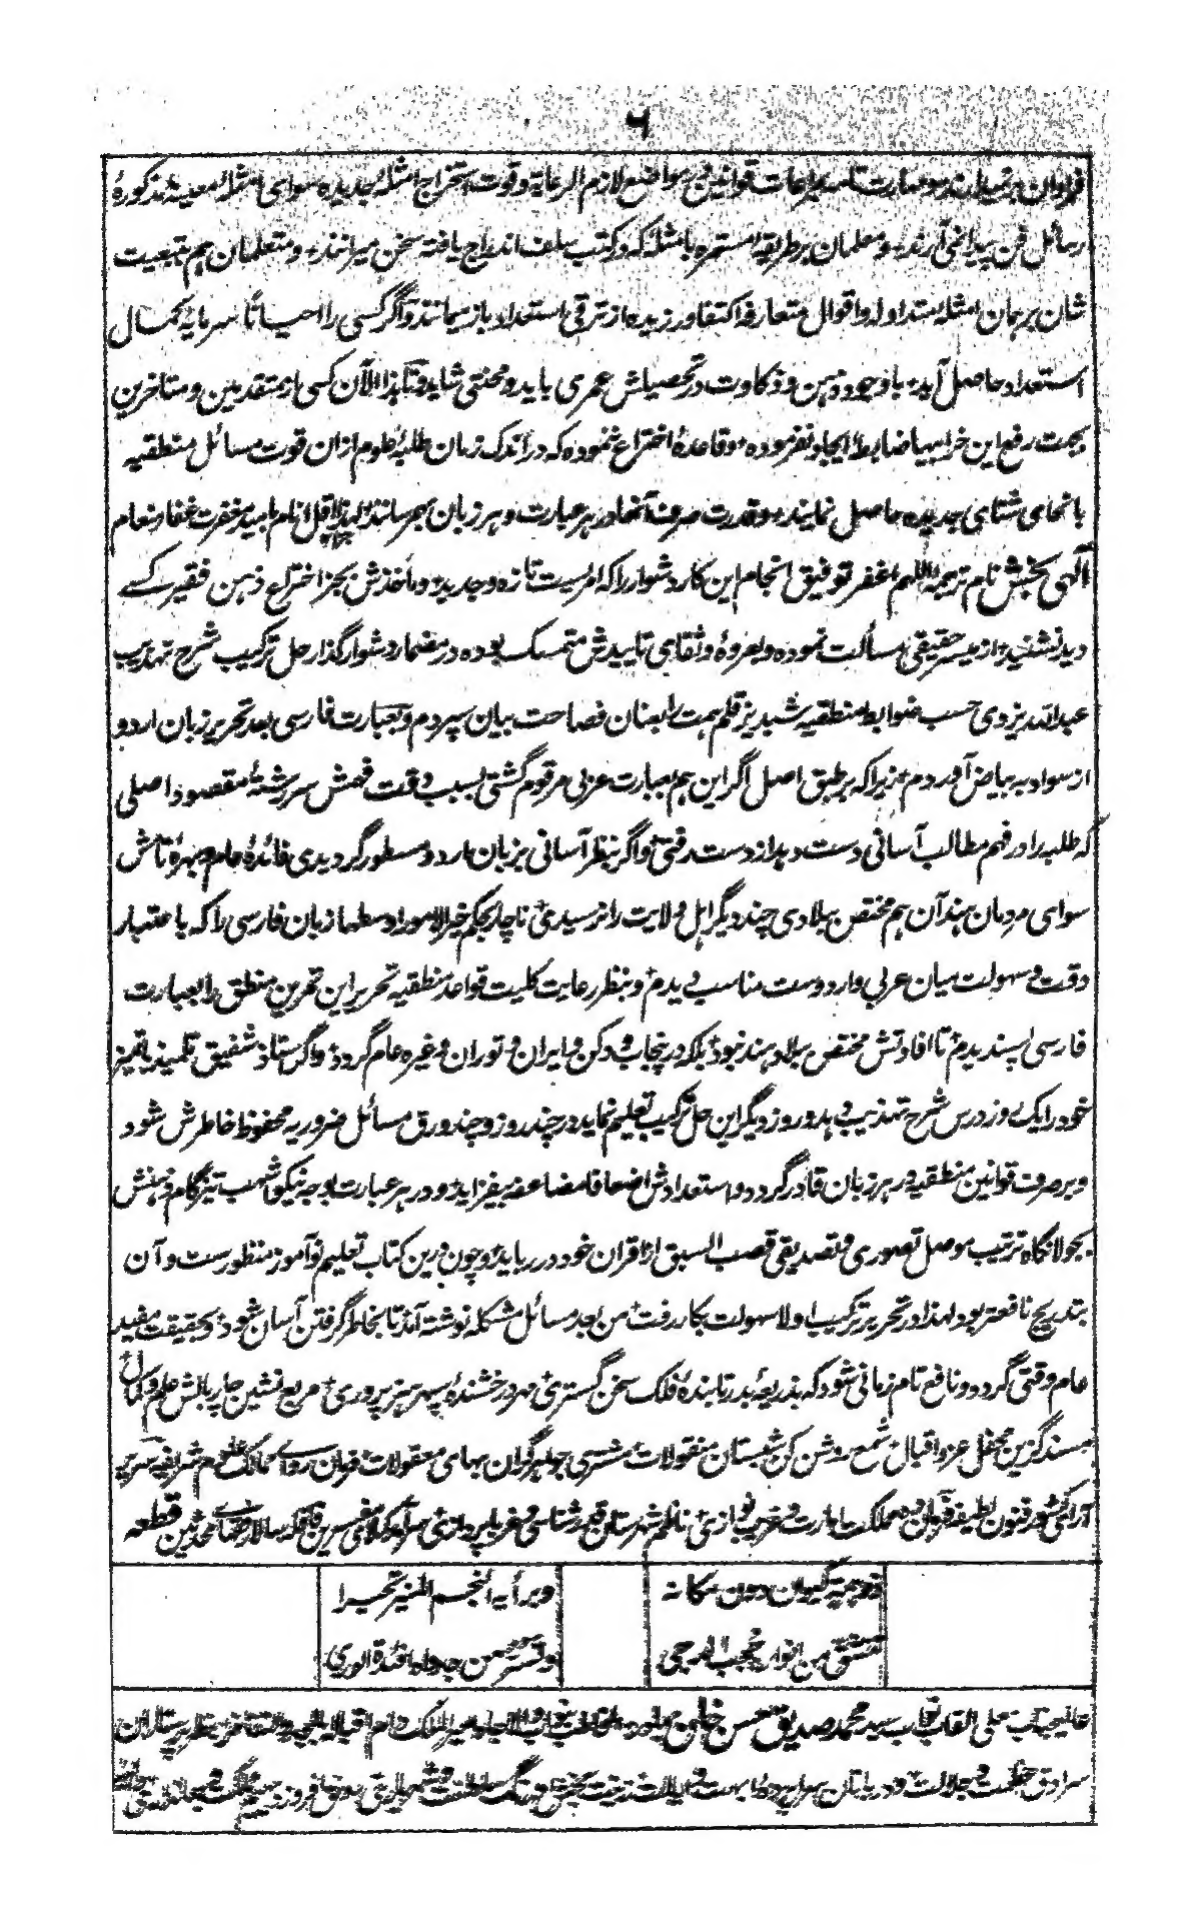 ۶
فراوان برنمیدارند و مهارت تامه بمراعات قوانین در مواضع لازم الرعایة و قوت استخراج امثلهٔ جدیده سوای امثلهٔ معینهٔ مذکورهٔ
رسائل فن پیدا نمی آرند و معلمان بر طریقهٔ مستمره با مثله که در کتب سلف اندراج یافته سخن میرانند و متعلمان هم بتبعیت
شان بر همان امثلهٔ متداوله و اقوال متعارفه اکتفا ورزیده از ترقی استعداد باز میمانند و اگر کسی را احیاناً سرمایهٔ کمال
استعداد حاصل آید با وجود ذهن و ذکاوت در تحصیلش عمری باید و محنتی شاید و تا هذا الآن کسی از متقدمین و متاخرین
بجهت رفع این خرابیها ضابطهٔ ایجاد نفرموده و قاعدهٔ اختراع ننموده که در اندک زمان طلبهٔ علوم ازان قوت مسائل منطقیه
بانحای شتای جدیده حاصل نمایند و قدرت صرف آنها در هر عبارت و هر زبان بهم رسانند لهذا اقل انام بامید مغفرت غفار منعام
آلهی بخش نام ترجمه اللهم اغفر توفیق انجام این کار دشوار را که امریست تازه و جدید و مأخذش بجز اختراع ذهن فقیر کسے
دید نشنید از میسر حقیقی مسألت نموده و بعروهٔ وثقای تاییدش متمسک بوده در مضمار دشوار گذار حل ترکیب شرح تهذیب
عبدالله یزدی حسب ضوابط منطقیه شبدیز قلم همت را بعنان فصاحت بیان سپردم و بعبارت فارسی بعد تحریر زبان اردو
از سواد به بیاض آوردم زیرا که بر طبق اصل اگر این هم بعبارت عربی مرقوم گشتی بسبب وقت فهمش سررشتهٔ مقصود اصلی
که طلبه را در فهم مطالب آسانی دست دهد از دست رفتی و اگر بنظر آسانی بزبان اردو مسطور گردیدی فائدهٔ عام و بهرهٔ تامش
سوای مردمان هند آن هم مختص ببلادی چند دیگر اهل ولایت را نرسیدی ناچار بحکم خیر الامور اوسطها زبان فارسی را که باعتبار
دقت و سهولت میان عربی و اردوست مناسب دیدم و بنظر رعایت کلیت قواعد منطقیه تحریر این تمرین منطق را بعبارت
فارسی پسندیدم تا افادتش مختص ببلاد هند نبود بلکه در پنجاب و دکن و ایران و توران و غیره عام گردد و اگر استاد شفیق تلمیذ باتمیز
خود را یک روز درس شرح تهذیب بدهد و روز دیگر این حل ترکیب تعلیم نماید در چند روز و چند ورق مسائل ضروریه محفوظ خاطرش شود
و بر صرف قوانین منطقیه در هر زبان قادر گردد و استعدادش اضعافا مضاعفه بیفزاید و در هر عبارت بوجه نیکو اشهب تیزگام ذهنش
بجولانگاه ترتیب موصل تصوری و تصدیقی قصب السبق از اقران خود در رباید و چون درین کتاب تعلیم نوآموز منظورست و آن
بتدریج نافعتر بود لهذا در تحریر ترکیب اولا سهولت بکار رفت من بعد مسائل مشکله نوشته آمد تا بخاطر گرفتن آسان شود و بحقیقت مفید
عام وقتی گردد و نافع تام زمانی شود که بذریعهٔ بدر تابندهٔ فلک سخن گستری مهر درخشندهٔ سپهر هنرپروری مربع نشین چار بالش علم و کمال
مسند گزین محفل عز و اقبال شمع روشن کن شبستان منقولات مشتری جواهر گران بهای معقولات فرمان روای ممالک علوم شریفه سریر
آرای کشور فنون لطیفه مملکت امارت و غریب نوازی ناظم شهرستان قدر شناسی و غربا پروری قافله سالار محدثین قطعه
ذو همة کیوان دون مکانه
وبرأیه النجم المنیر تحیرا
تنشق من انوار حجب الدجی
وتستر من جدواه افئدة الوری
عالیجناب معلی القاب نواب سید محمد صدیق حسن خان بهادر المخاطب بنواب والا جاه امیر الملک دام اقباله
سرادق عظمت و جلالت